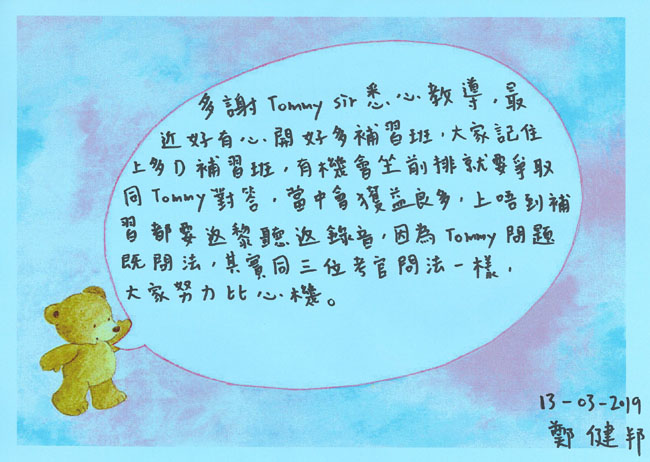 多謝Tommy sir悉心教導，最
近好有心開好多補習班，大家記住
上多D補習班，有機會坐前排就要爭取
同Tommy對答，當中會獲益良多，上唔到補
習都要返黎聽返錄音，因為Tommy問題
既問法，其實同三位考官問法一樣，
大家努力比心機。
13-03-2019
鄭健邦